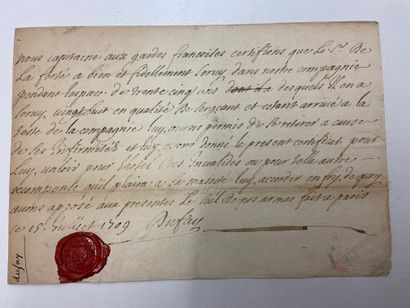 nous capitaine aux gardes francoises certifions que le Sr. De
la forté a bien et fidellement servy, dans nostre compagnie
pendant lespace de trente cinq ans dont il a desquels il en a
servy, vingt huit en qualité de sergeant et estant arrivé a la
teste de la compagnie luy, avons permis de se retirer a cause
de ses Infirmités et luy avons donné le present certificat pour
Luy, valoir pour l'hostel des Invalides ou pour telle autre
recompense quil plaira a sa majesté luy, accorder en foy de quoy
avons apposé aux presentes le scel de nos armes fait a paris
ce 15e. Juillet 1709 Dufay
dufay